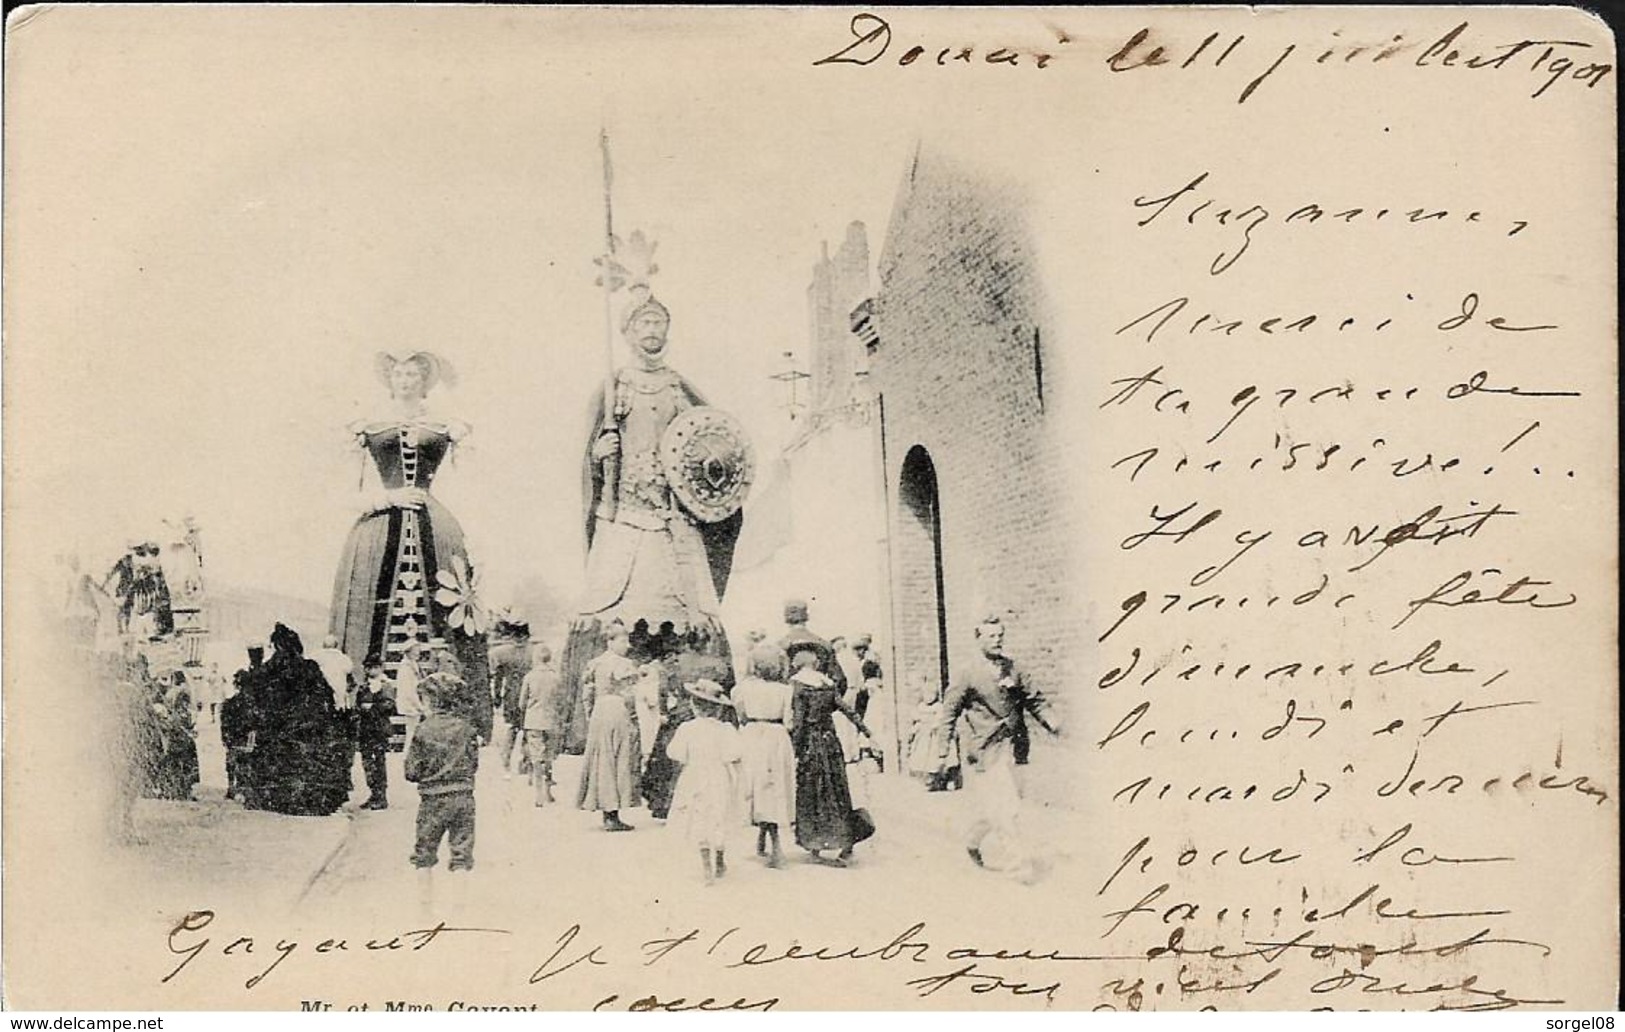 Douai le 11 juillet 1901
Suzanne,
merci de
ta grande
missive!..
Il y avait
grande fête
dimanche,
lundi et
mardi dernier
pour la
famille
Gayant je t'embrasse de tout
coeur ton vieil oncle
Mr et Mme Gayant
sorgel08
delcampe.net